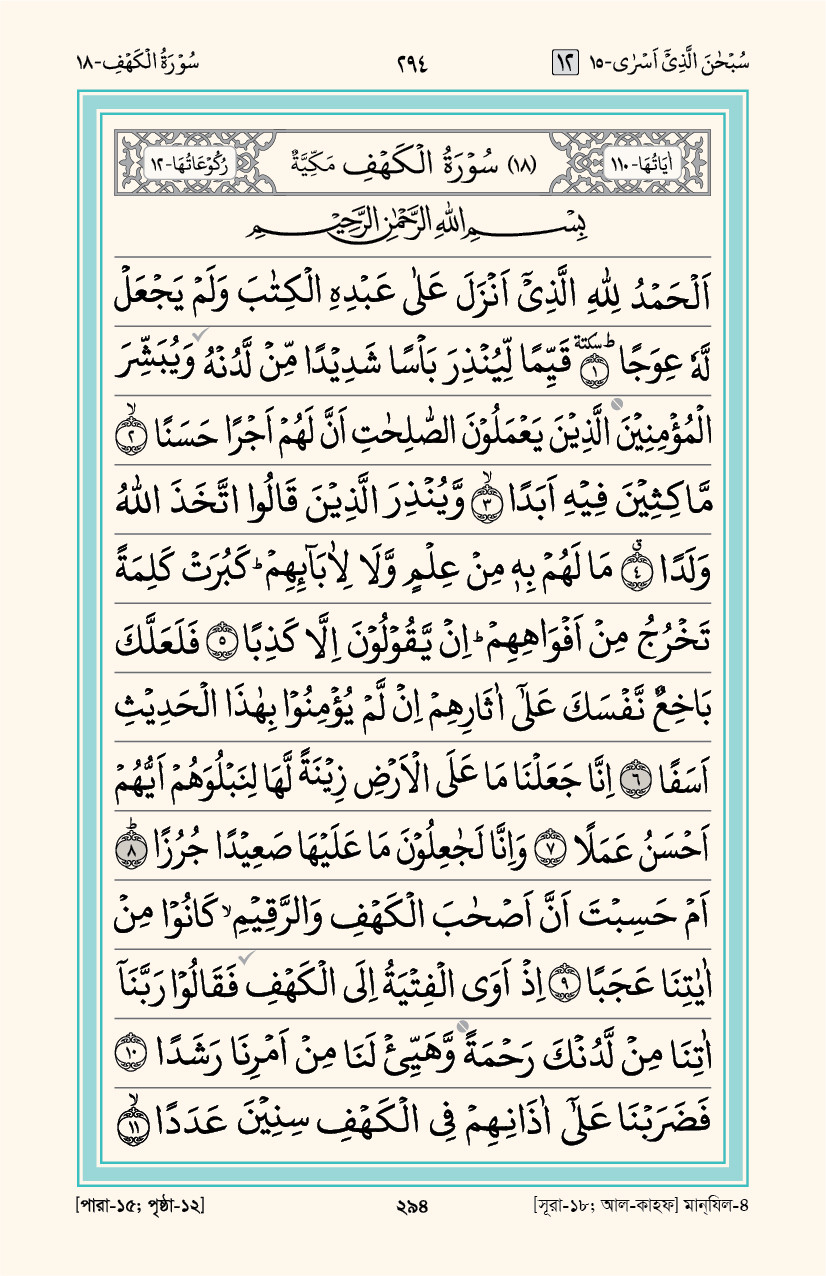 سُوْرَةُ الْكَهْفِ-١٨ ٢٩٤ ١٢ سُبْحٰنَ الَّذِيْٓ اَسْرٰى-١٥
اٰيَاتُهَا-١١٠ (١٨) سُوْرَةُ الْكَهْفِ مَكِّيَّةٌ رُكُوْعَاتُهَا-١٢
بِسْمِ اللهِ الرَّحْمٰنِ الرَّحِيْمِ
اَلْحَمْدُ لِلّٰهِ الَّذِيْٓ اَنْزَلَ عَلٰى عَبْدِهِ الْكِتٰبَ وَلَمْ يَجْعَلْ
لَّهٗ عِوَجًا ؕ سكتة ١ قَيِّمًا لِّيُنْذِرَ بَاْسًا شَدِيْدًا مِّنْ لَّدُنْهُ وَيُبَشِّرَ
الْمُؤْمِنِيْنَ الَّذِيْنَ يَعْمَلُوْنَ الصّٰلِحٰتِ اَنَّ لَهُمْ اَجْرًا حَسَنًا ۙ ٢
مَّاكِثِيْنَ فِيْهِ اَبَدًا ۙ ٣ وَّيُنْذِرَ الَّذِيْنَ قَالُوا اتَّخَذَ اللهُ
وَلَدًا ۗ ٤ مَا لَهُمْ بِهٖ مِنْ عِلْمٍ وَّلَا لِاٰبَآئِهِمْ ؕ كَبُرَتْ كَلِمَةً
تَخْرُجُ مِنْ اَفْوَاهِهِمْ ؕ اِنْ يَّقُوْلُوْنَ اِلَّا كَذِبًا ٥ فَلَعَلَّكَ
بَاخِعٌ نَّفْسَكَ عَلٰٓى اٰثَارِهِمْ اِنْ لَّمْ يُؤْمِنُوْا بِهٰذَا الْحَدِيْثِ
اَسَفًا ٦ اِنَّا جَعَلْنَا مَا عَلَى الْاَرْضِ زِيْنَةً لَّهَا لِنَبْلُوَهُمْ اَيُّهُمْ
اَحْسَنُ عَمَلًا ٧ وَاِنَّا لَجٰعِلُوْنَ مَا عَلَيْهَا صَعِيْدًا جُرُزًا ؕ ٨
اَمْ حَسِبْتَ اَنَّ اَصْحٰبَ الْكَهْفِ وَالرَّقِيْمِ ۙ كَانُوْا مِنْ
اٰيٰتِنَا عَجَبًا ٩ اِذْ اَوَى الْفِتْيَةُ اِلَى الْكَهْفِ فَقَالُوْا رَبَّنَآ
اٰتِنَا مِنْ لَّدُنْكَ رَحْمَةً وَّهَيِّئْ لَنَا مِنْ اَمْرِنَا رَشَدًا ١٠
فَضَرَبْنَا عَلٰٓى اٰذَانِهِمْ فِى الْكَهْفِ سِنِيْنَ عَدَدًا ۙ ١١
[পারা-১৫; পৃষ্ঠা-১২] ২৯৪ [সূরা-১৮; আল-কাহফ] মান্‌যিল-৪